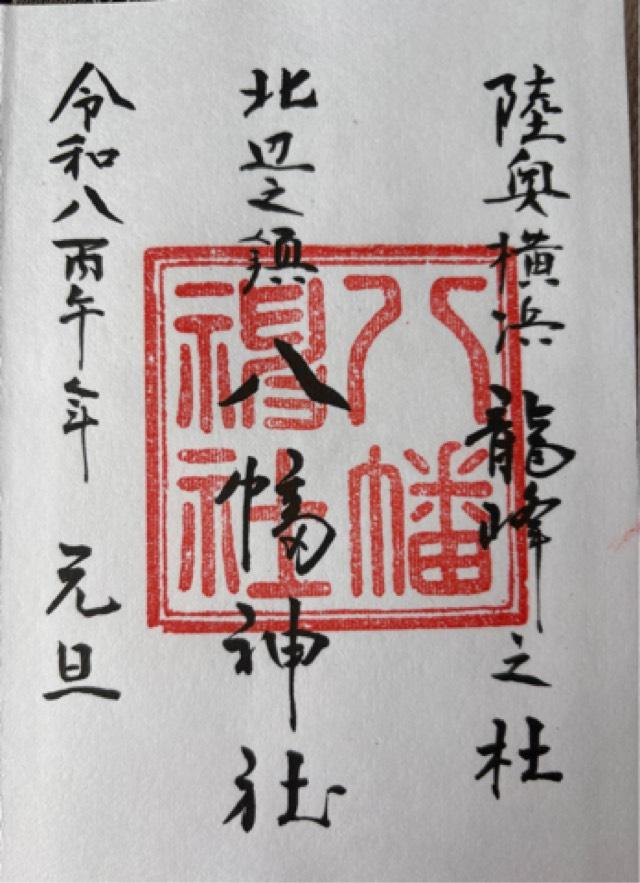 陸奥横浜 龍峰之杜
北辺之鎮 八幡神社
令和八丙午年 元旦
八幡
社